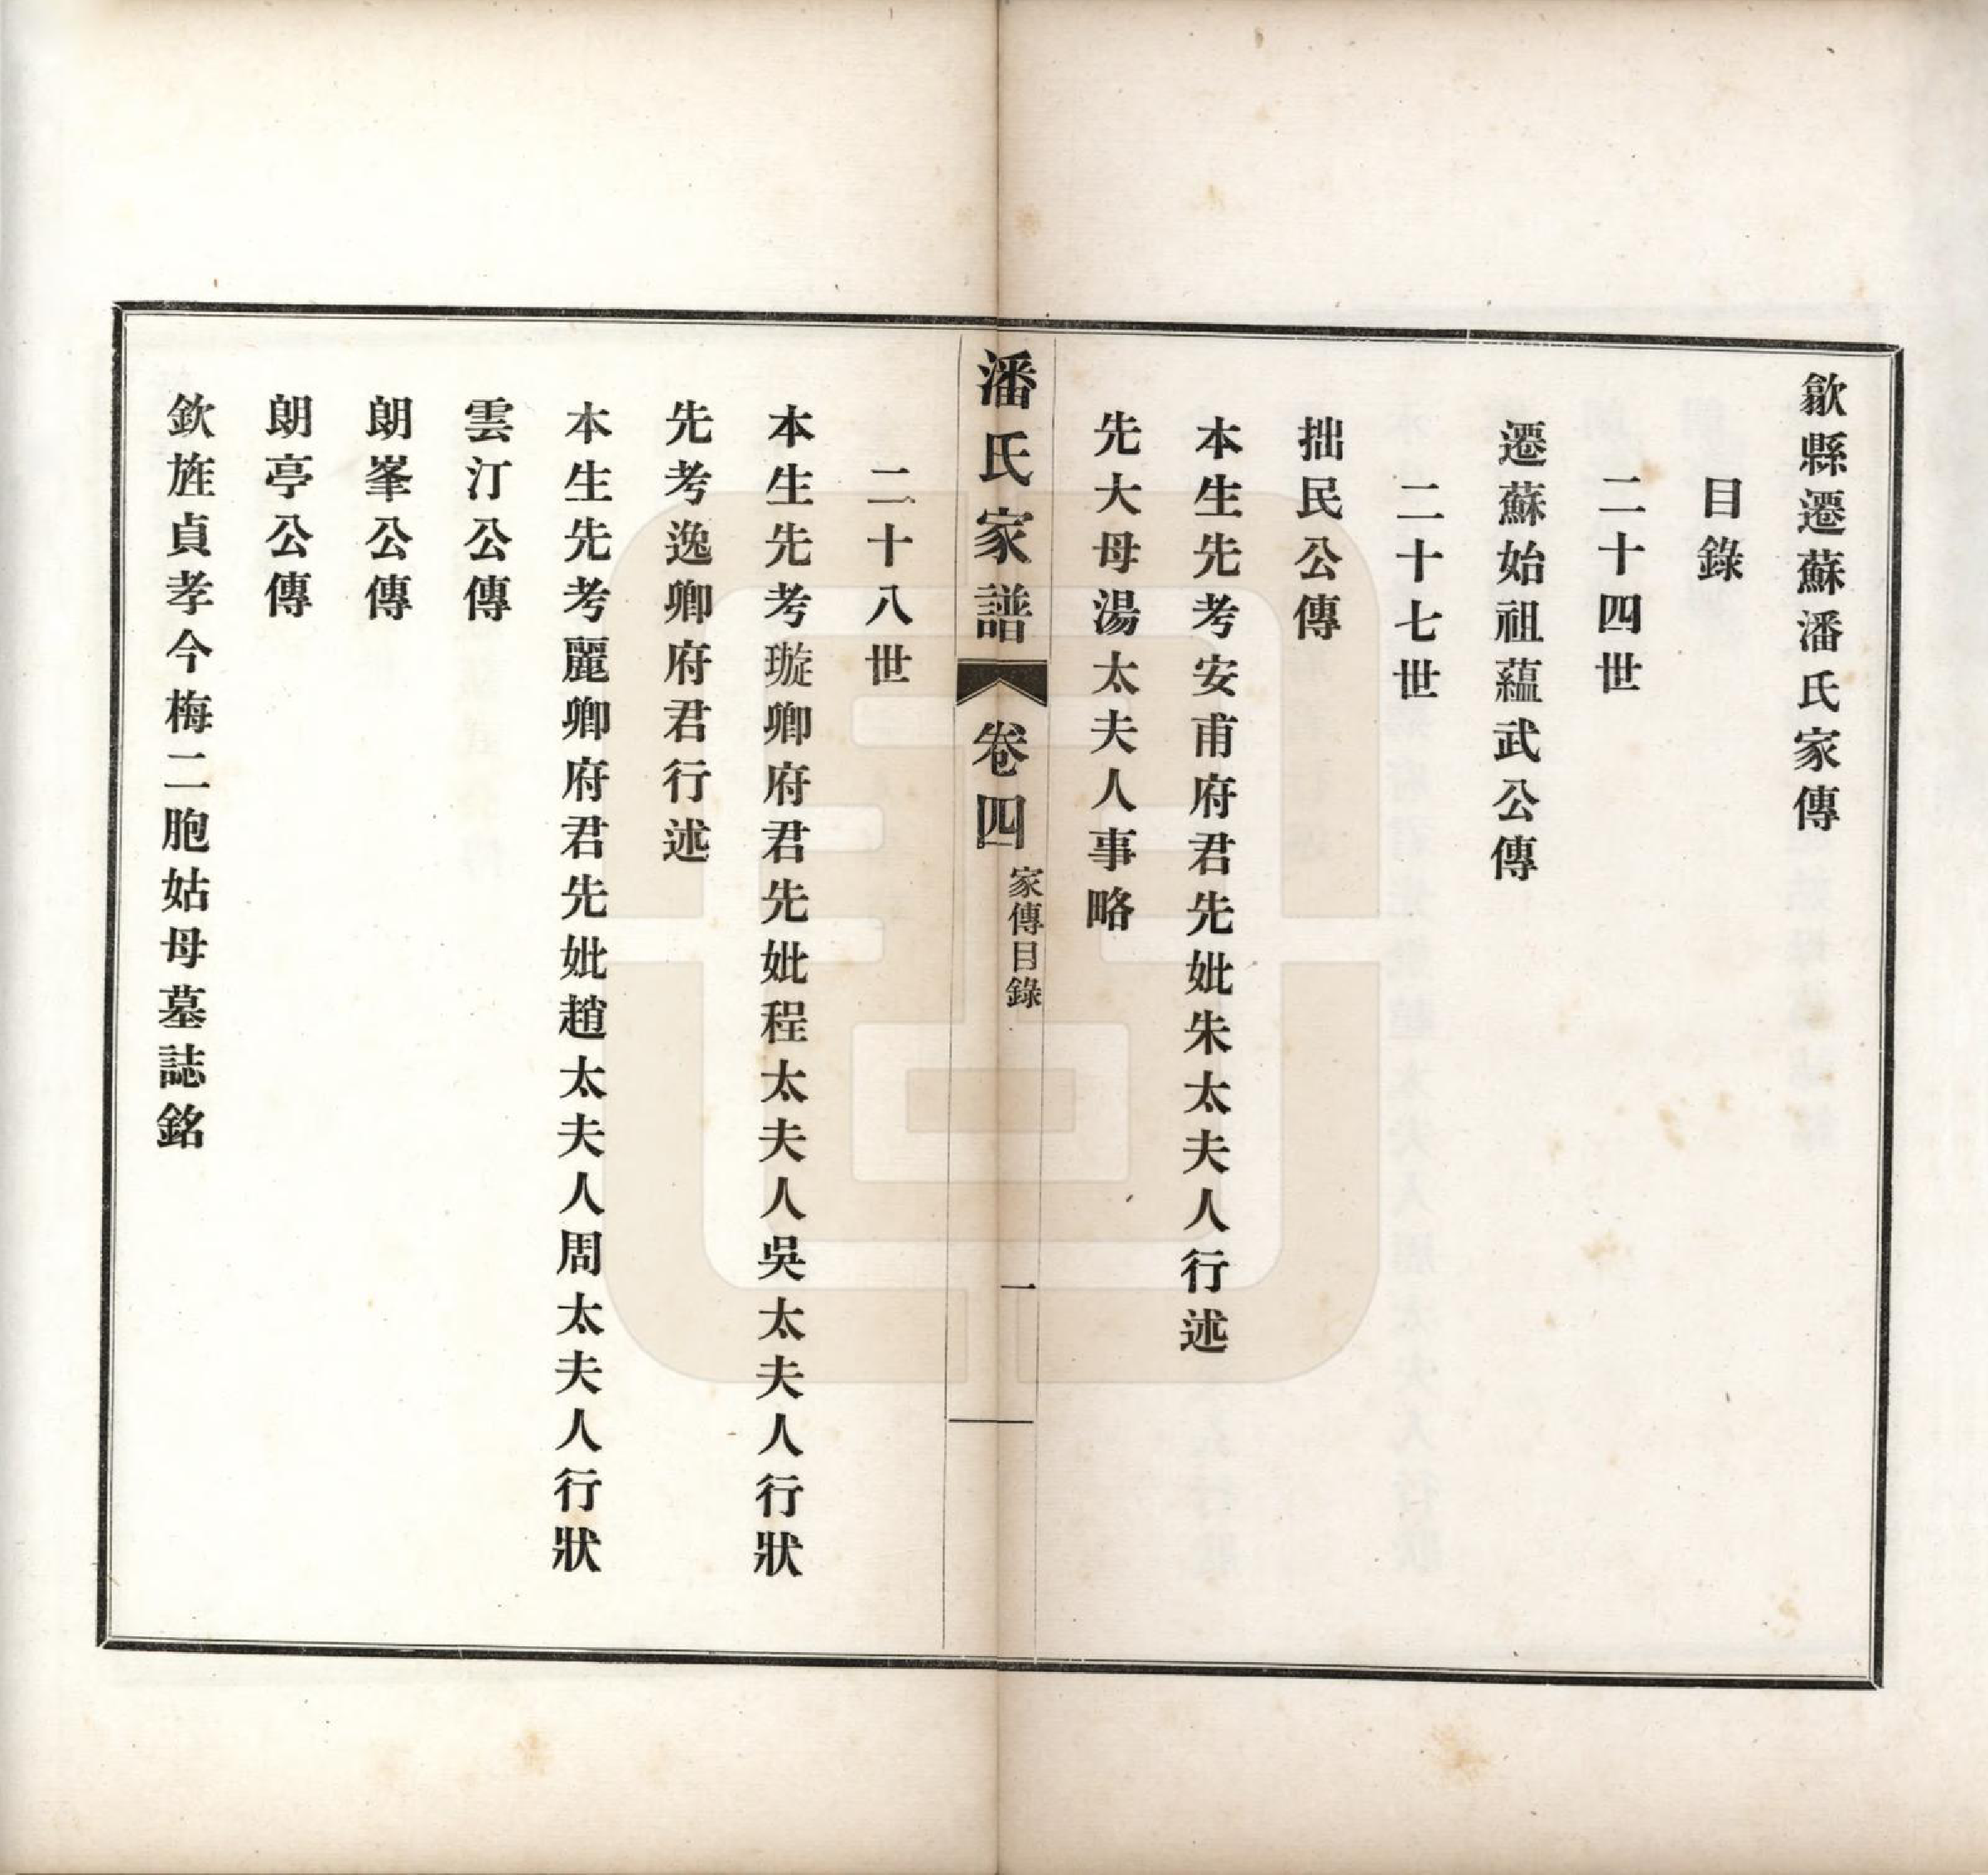 歙縣遷蘇潘氏家傳
目錄
二十四世
遷蘇始祖蘊武公傳
二十七世
拙民公傳
本生先考安甫府君先妣朱太夫人行述
先大母湯太夫人事略
潘氏家譜 卷四 家傳目錄 一
二十八世
本生先考璇卿府君先妣程太夫人吳太夫人行狀
先考逸卿府君行述
本生先考麗卿府君先妣趙太夫人周太夫人行狀
雲汀公傳
朗峯公傳
朗亭公傳
欽旌貞孝今梅二胞姑母墓誌銘